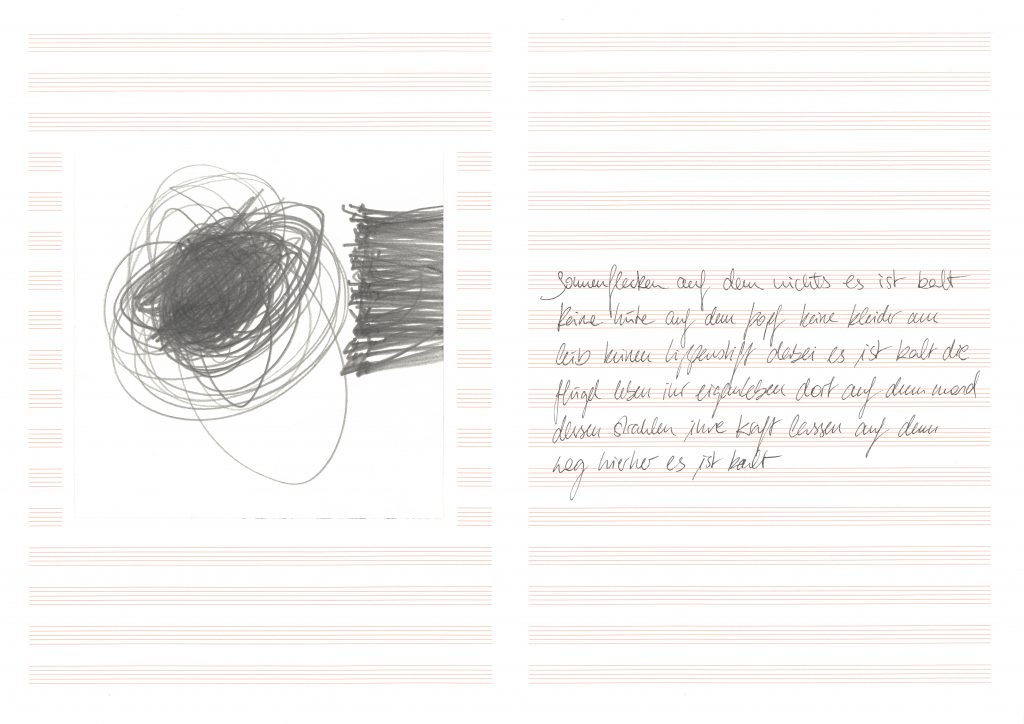 sonnenflecken auf dem nichts es ist kalt
keine hüte auf dem kopf keine kleider am
leib keinen lippenstift dabei es ist kalt die
flügel leben ihr eigenleben dort auf dem mond
dessen strahlen ihre kraft lassen auf dem
weg hierher es ist kalt